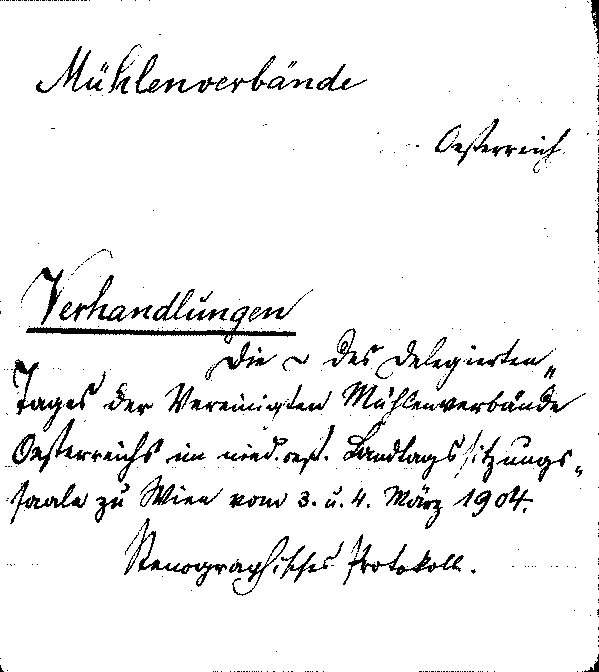 Mühlenverbände
Oesterreich
Verhandlungen
Die ~ des Delegierten„
Tages der Vereinigten Mühlenverbände
Oesterreichs im nied. oest. Landtagssitzungs„
saale zu Wien vom 3. u. 4. März 1904.
Stenographisches Protokoll.